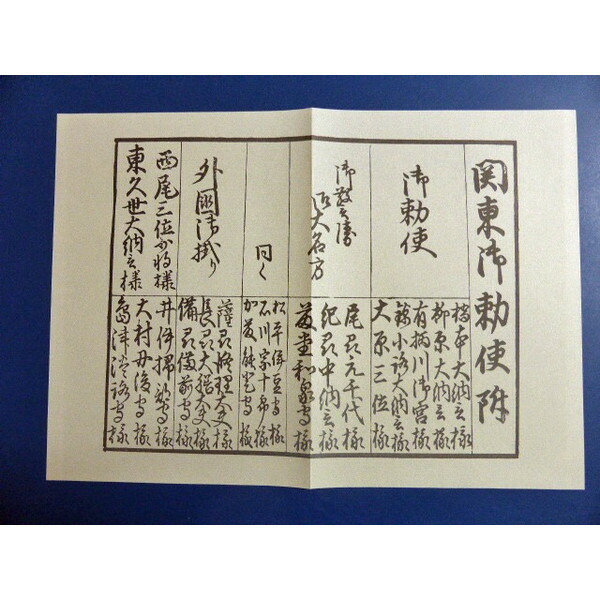 関東御勅使附
御勅使
橋本大納言様
柳原大納言様
有栖川御宮様
錦小路大納言様
大原三位様
御大名方
尾州元千代様
紀州中納言様
藤堂和泉守様
同く
松平伊豆守様
石川宗十郎様
加藤能登守様
外国御掛り
薩州修理大夫様
長州大膳大夫様
備州備前守様
西尾三位少将様
東久世大納言様
井伊掃部守様
大村丹後守様
島津淡路守様